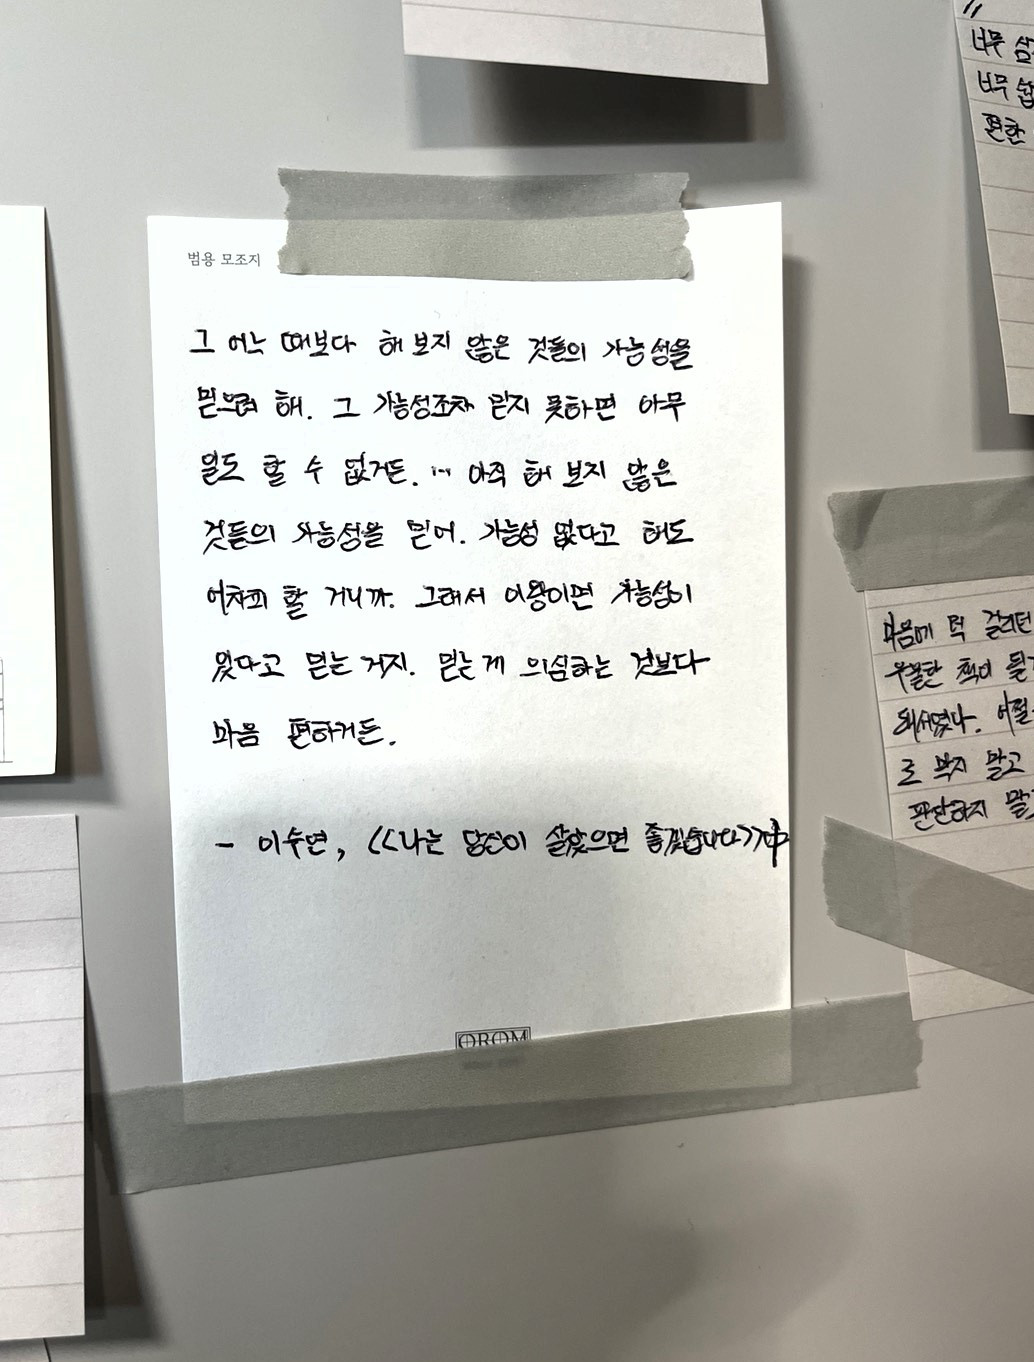 범용 모조지
그 어느 때보다 해 보지 않은 것들의 가능성을
믿으려 해. 그 가능성조차 믿지 못하면 아무
일도 할 수 없거든. … 아직 해 보지 않은
것들의 가능성을 믿어. 가능성 없다고 해도
어차피 할 거니까. 그래서 이왕이면 가능성이
있다고 믿는 거지. 믿는 게 의심하는 것보다
마음 편하거든.
- 이수연, 《나는 당신이 살았으면 좋겠습니다》中
OROM
너무
너무
편한
마음에 턱 걸리던
책이
로 말고
판단하지